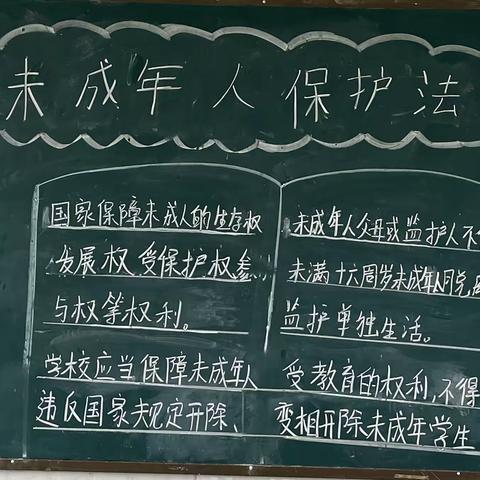 未成年人保护法
国家保障未成人的生存权
发展权受保护权参
与权等权利。
未成年人父母或监护人不
未满十六周岁未成年人脱离
监护单独生活。
学校应当保障未成年人受教育的权利,不得
违反国家规定开除、变相开除未成年学生